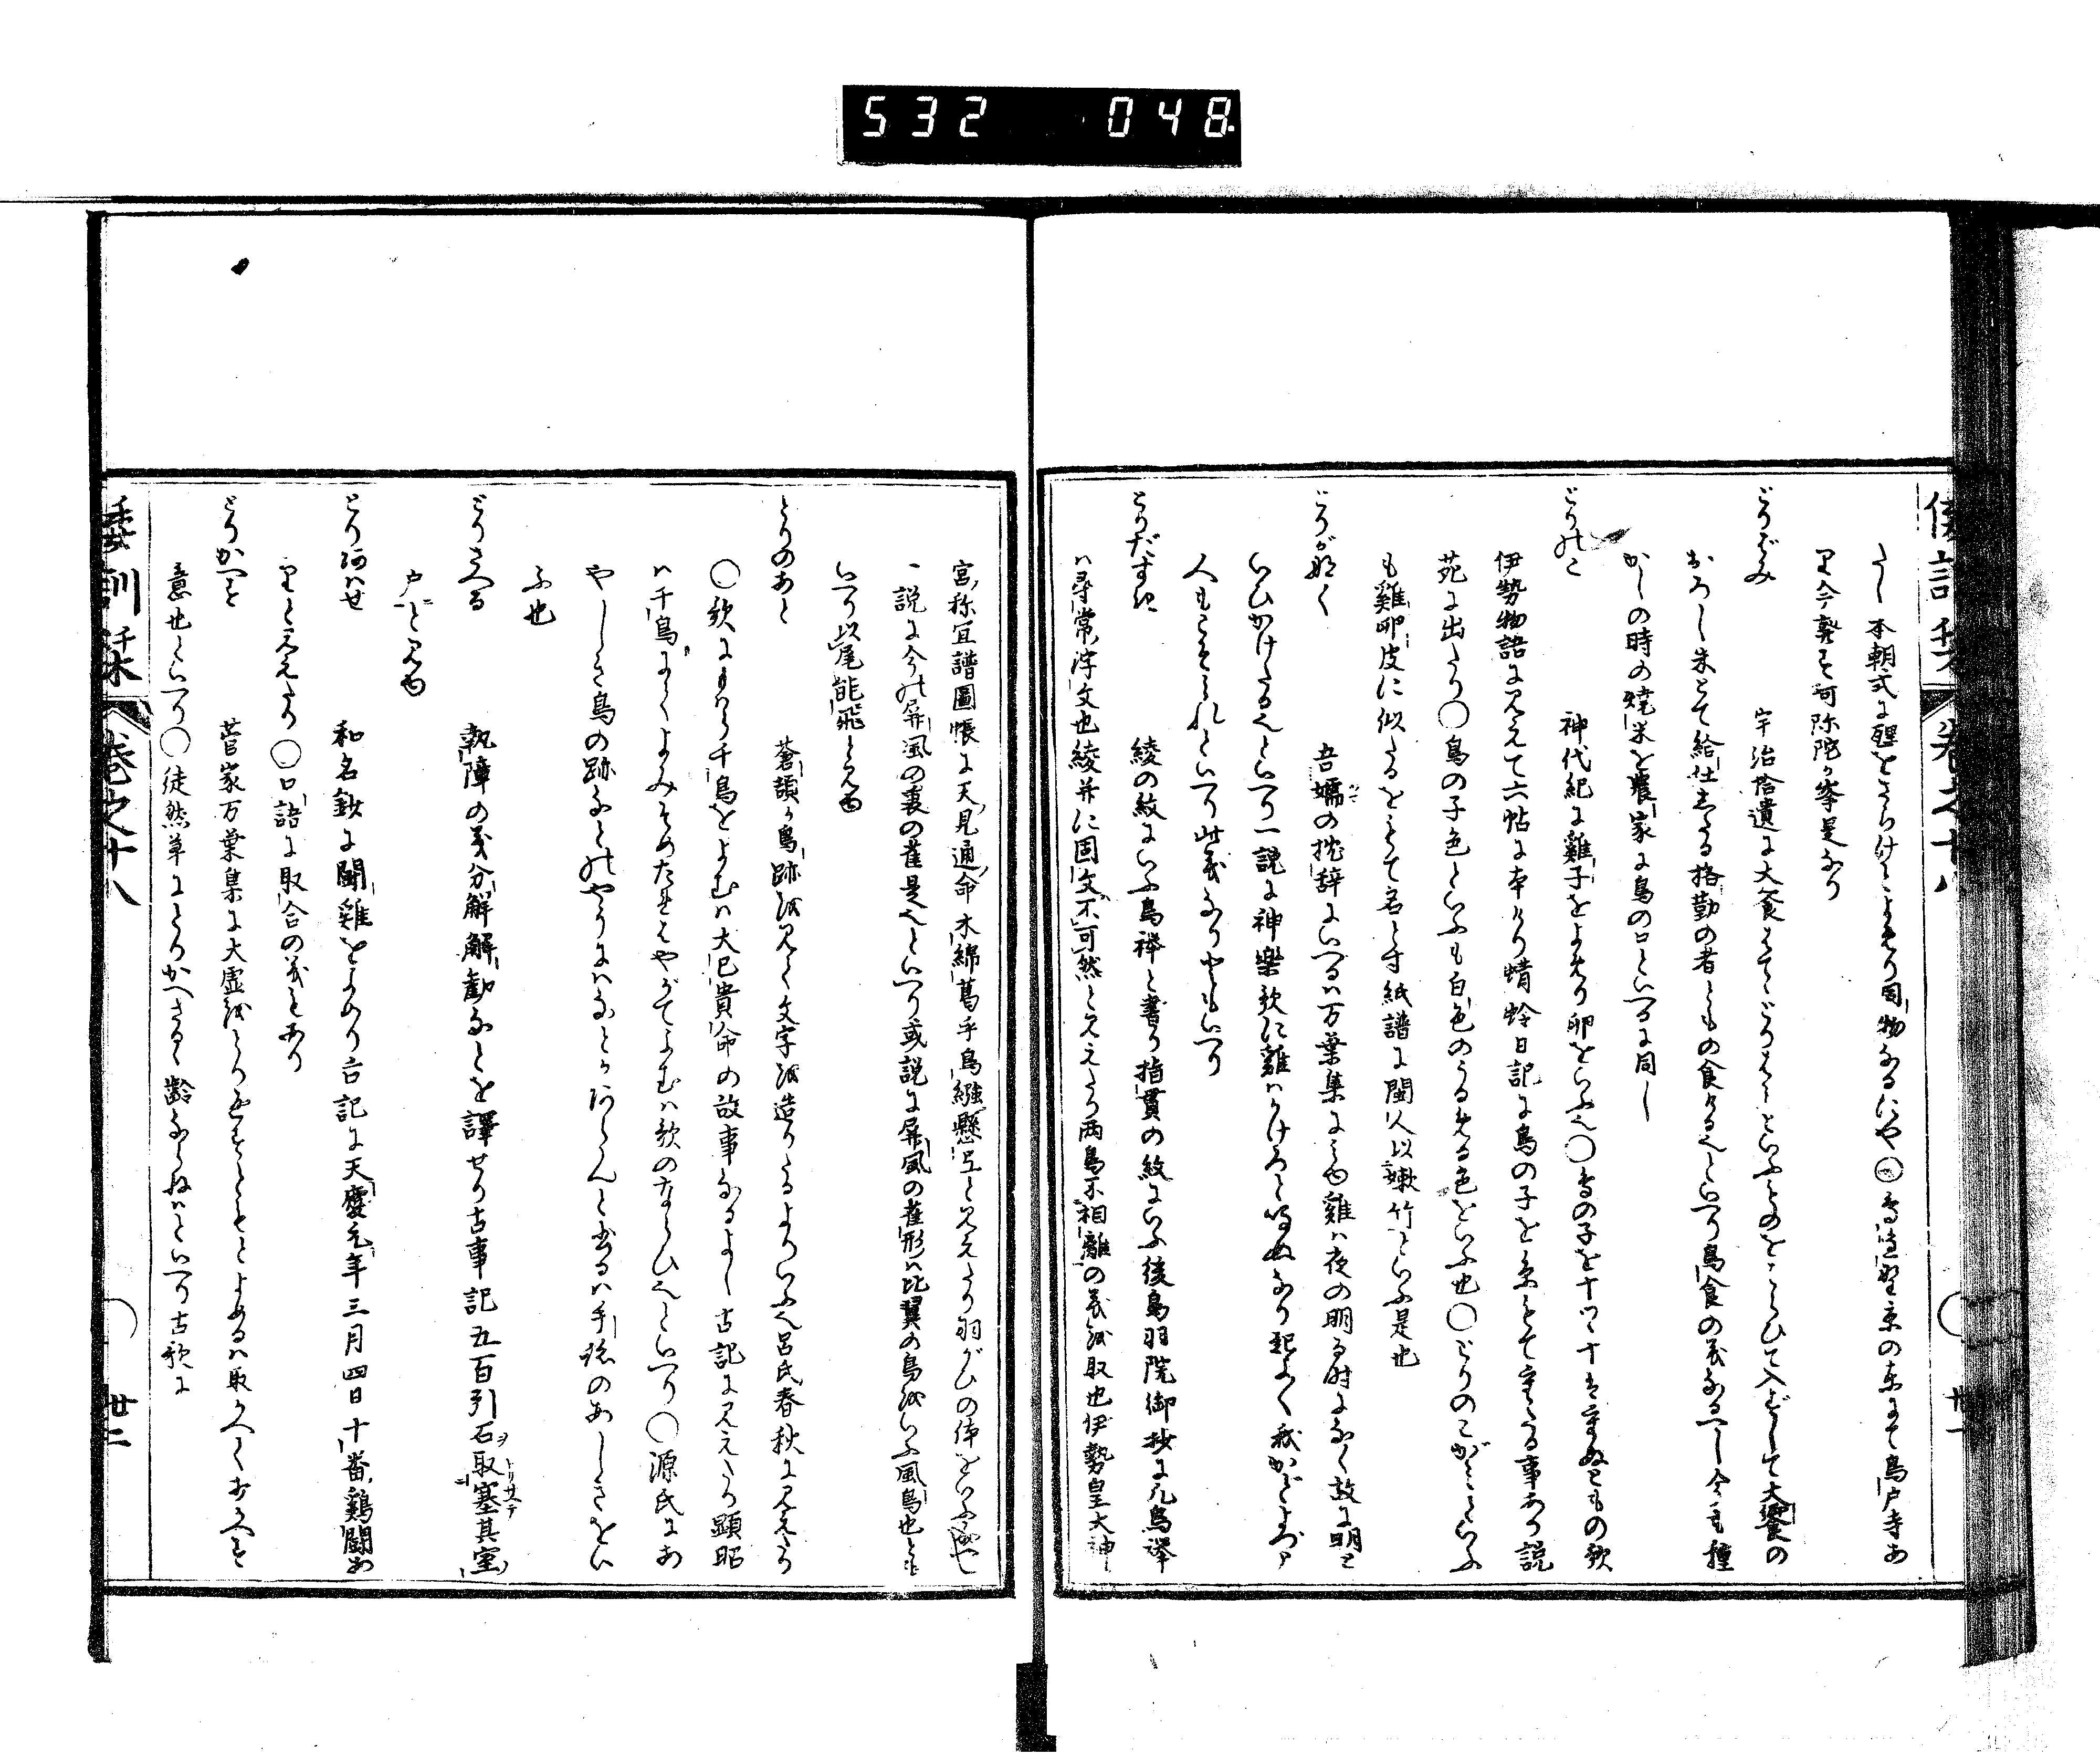 532 048
たし本朝式に𤭖をさらけとよめり同物なるにや○
り今聾を阿弥陀か峯是なり
とりばみ 宇治拾遺に大食はてゝとりばみといふものをはらひて入ずして大饗の
おろし米とて給仕したる格勤の者ともの食けるといへり鳥食の義なるべし今も種
かしの時の焼米を農家に鳥の口といへるに同し
とりのこ 神代紀に雞子をよめり卵をいふ也○鳥の子を十つゝ十はかさぬともの歌
伊勢物語に見えて六帖に本つけり蜻蛉日記に鳥の子を糸もてかさねたる事あり説
苑に出たり○鳥の子色といふも白色のうるめる色をいふ也○とりのこがみといふ
も雞卵皮に似たるをもて名とす紙譜に閩人以嫩竹といふ是也
とりがなく 吾嬬の枕辞にいへるハ万葉集にみゆ雞ハ夜の明る時になく故に明と
いひかけたる也といへり一説に神樂歌に雞ハかけろと鳴ぬなり起よ〱我かどよづま
人もこそみれといへり此義なりともいへり
とりだすき 綾の紋にいふ鳥襷と書り指貫の紋にいふ後鳥羽院御抄に凡鳥襷
ハ尋常浮文也綾并に固文不可然と見えたり両鳥不相離の義を取也伊勢皇大神
宮祢宜譜圖帳に天見通命木綿葛乎鳥繦懸互と見えたり羽がひの体をいふ
一説に今の屏風の裏の雀是也といへり或説に屏風の雀形ハ比翼の鳥をいふ風鳥也とも
いへり以尾能飛と見ゆ
とりのあと 蒼頡か鳥跡を見て文字を造りたるよりいふ也呂氏春秋に見えたり
○歌にもハら千鳥をよむハ大己貴命の故事なるよし古記に見えたり顕昭
ハ千鳥によくよみそめたれはやがてよむハ歌のならひ也といへり○源氏にあ
やしき鳥の跡などのやうにハなとかあらんと書るハ手跡のあしきをい
ふ也
とりさへる 執障の義分解解勸なとを譯せり古事記五百引石取塞其室
戸と見ゆ
とりあはせ 和名鈔に闘雞をよめり古記に天慶元年三月四日十番鷄闘あ
りと見えたり○口語に取合の義もあり
とりかへす 菅家万葉集に大虚をとりかへすともとよめるハ取かへしおかへす
意也といへり○徒然草にとりかへさるゝ齢ならねハといへり古歌に
倭訓栞 巻之十八 卅一
倭訓栞 巻之十八 卅二